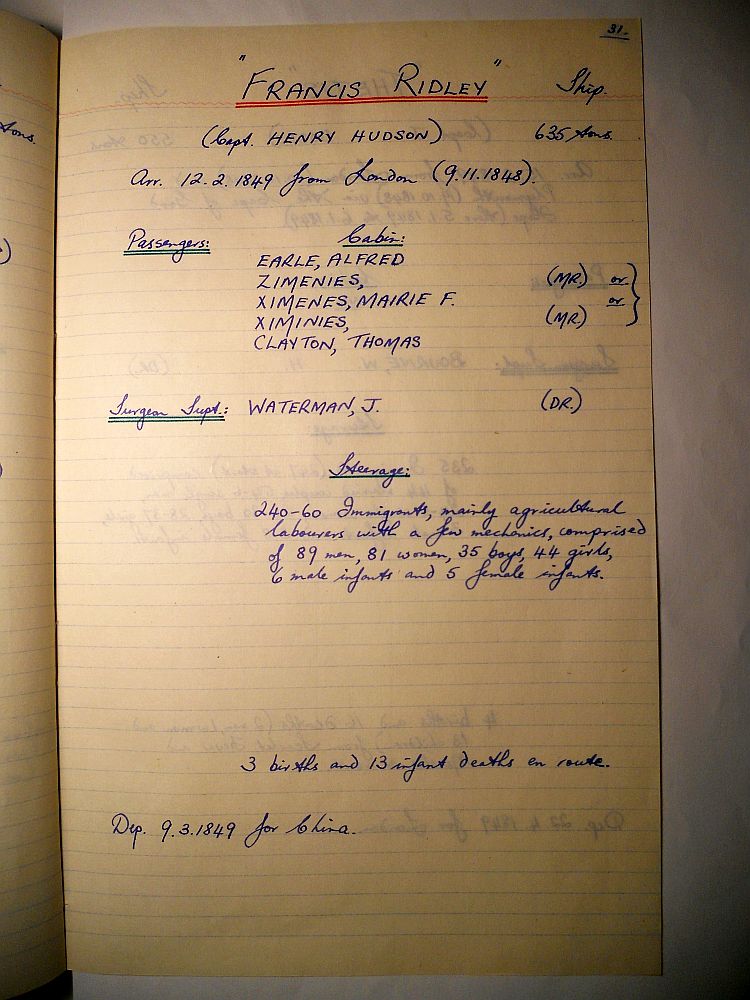 31.
"FRANCIS RIDLEY" Ship.
(Capt. HENRY HUDSON) 635 tons.
Arr. 12.2.1849 from London (9.11.1848).
Passengers: Cabin:
EARLE, ALFRED
ZIMENIES, (MR) or
XIMENES, MAIRIE F. or
XIMINIES, (MR)
CLAYTON, THOMAS
Surgeon Supt.: WATERMAN, J. (DR.)
Steerage:
240-60 Immigrants, mainly agricultural
labourers with a few mechanics, comprised
of 89 men, 81 women, 35 boys, 44 girls,
6 male infants and 5 female infants.
3 births and 13 infant deaths en route.
Dep. 9.3.1849 for China.
tons.